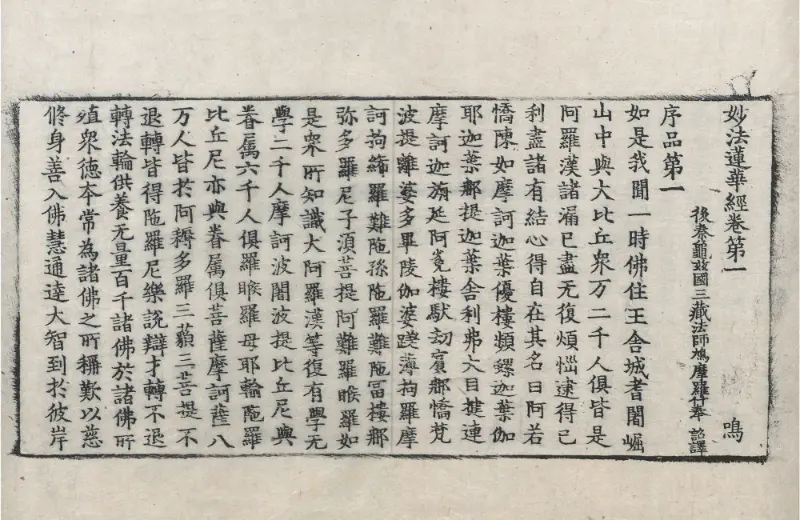 妙法蓮華經卷第一 鳴
後秦龜茲國三藏法師鳩摩羅什奉 詔譯
序品第一
如是我聞一時佛住王舍城耆闍崛
山中與大比丘衆万二千人俱皆是
阿羅漢諸漏已盡无復煩惱逮得己
利盡諸有結心得自在其名曰阿若
憍陳如摩訶迦葉優樓頻螺迦葉伽
耶迦葉那提迦葉舍利弗大目揵連
摩訶迦旃延阿㝹樓馱劫賓那憍梵
波提離婆多畢陵伽婆蹉薄拘羅摩
訶拘絺羅難陁孫陁羅難陁冨樓那
弥多羅尼子湏菩提阿難羅睺羅如
是衆所知識大阿羅漢等復有學无
學二千人摩訶波闍波提比丘尼與
眷属六千人俱羅睺羅母耶輸陁羅
比丘尼亦與眷属俱菩薩摩訶薩八
万人皆於阿耨多羅三藐三菩提不
退轉皆得陁羅尼樂說辯才轉不退
轉法輪供養无量百千諸佛於諸佛所
殖衆德本常為諸佛之所稱歎以慈
修身善入佛慧通達大智到於彼岸